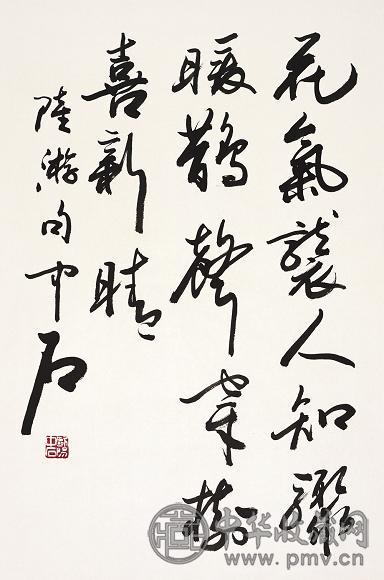 花氣襲人知驟
暖鵲聲穿樹
喜新晴
陸游句中石
歐陽中石
中华收藏网
www.pmv.cn